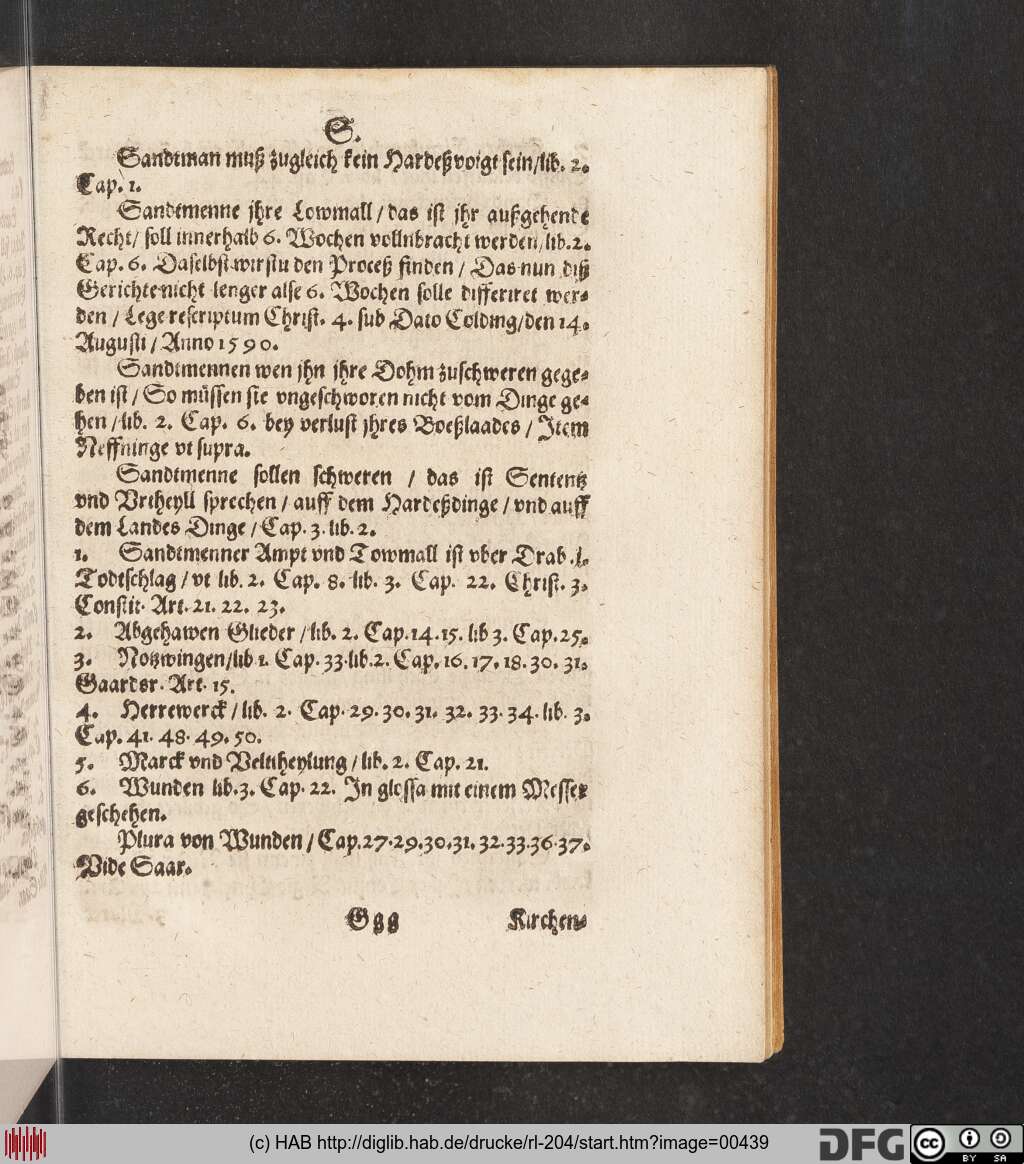 S.
Sandtman muß zugleich kein Hardeßvoigt sein/lib. 2.
Cap. 1.
Sandtmenne jhre Lowmall / das ist jhr außgehende
Recht/ soll innerhalb 6. Wochen vollnbracht werden/lib. 2.
Cap. 6. Daselbst wirstu den Proceß finden / Das nun diß
Gerichte nicht lenger alse 6. Wochen solle differiret wer-
den / Lege rescriptum Christ. 4. sub Dato Colding/den 14.
Augusti / Anno 1590.
Sandtmennen wen jhn jhre Dohm zuschweren gege-
ben ist / So müssen sie vngeschworen nicht vom Dinge ge-
hen /lib. 2. Cap. 6. bey verlust jhres Boeßlaades / Item
Neffninge vt supra.
Sandtmenne sollen schweren / das ist Sententz
vnd Vrtheyll sprechen / auff dem Hardeßdinge / vnd auff
dem Landes Dinge / Cap. 3. lib. 2.
1. Sandtmenner Ampt vnd Towmall ist vber Drab .i.
Todtschlag / vt lib. 2. Cap. 8. lib. 3. Cap. 22. Christ. 3.
Constit. Art. 21. 22. 23.
2. Abgehawen Glieder / lib. 2. Cap. 14. 15. lib 3. Cap. 25.
3. Notzwingen/lib 1. Cap. 33. lib. 2. Cap. 16. 17. 18. 30. 31.
Gaardsr. Art. 15.
4. Herrewerck / lib. 2. Cap. 29. 30. 31. 32. 33. 34. lib. 3.
Cap. 41. 48. 49. 50.
5. Marck vnd Veltheylung / lib. 2. Cap. 21.
6. Wunden lib. 3. Cap. 22. In glossa mit einem Messer
geschehen.
Plura von Wunden / Cap. 27. 29. 30. 31. 32. 33. 36. 37.
Vide Saar.
Ggg Kirchen-
(c) HAB http://diglib.hab.de/drucke/rl-204/start.htm?image=00439
DFG cc BY SA